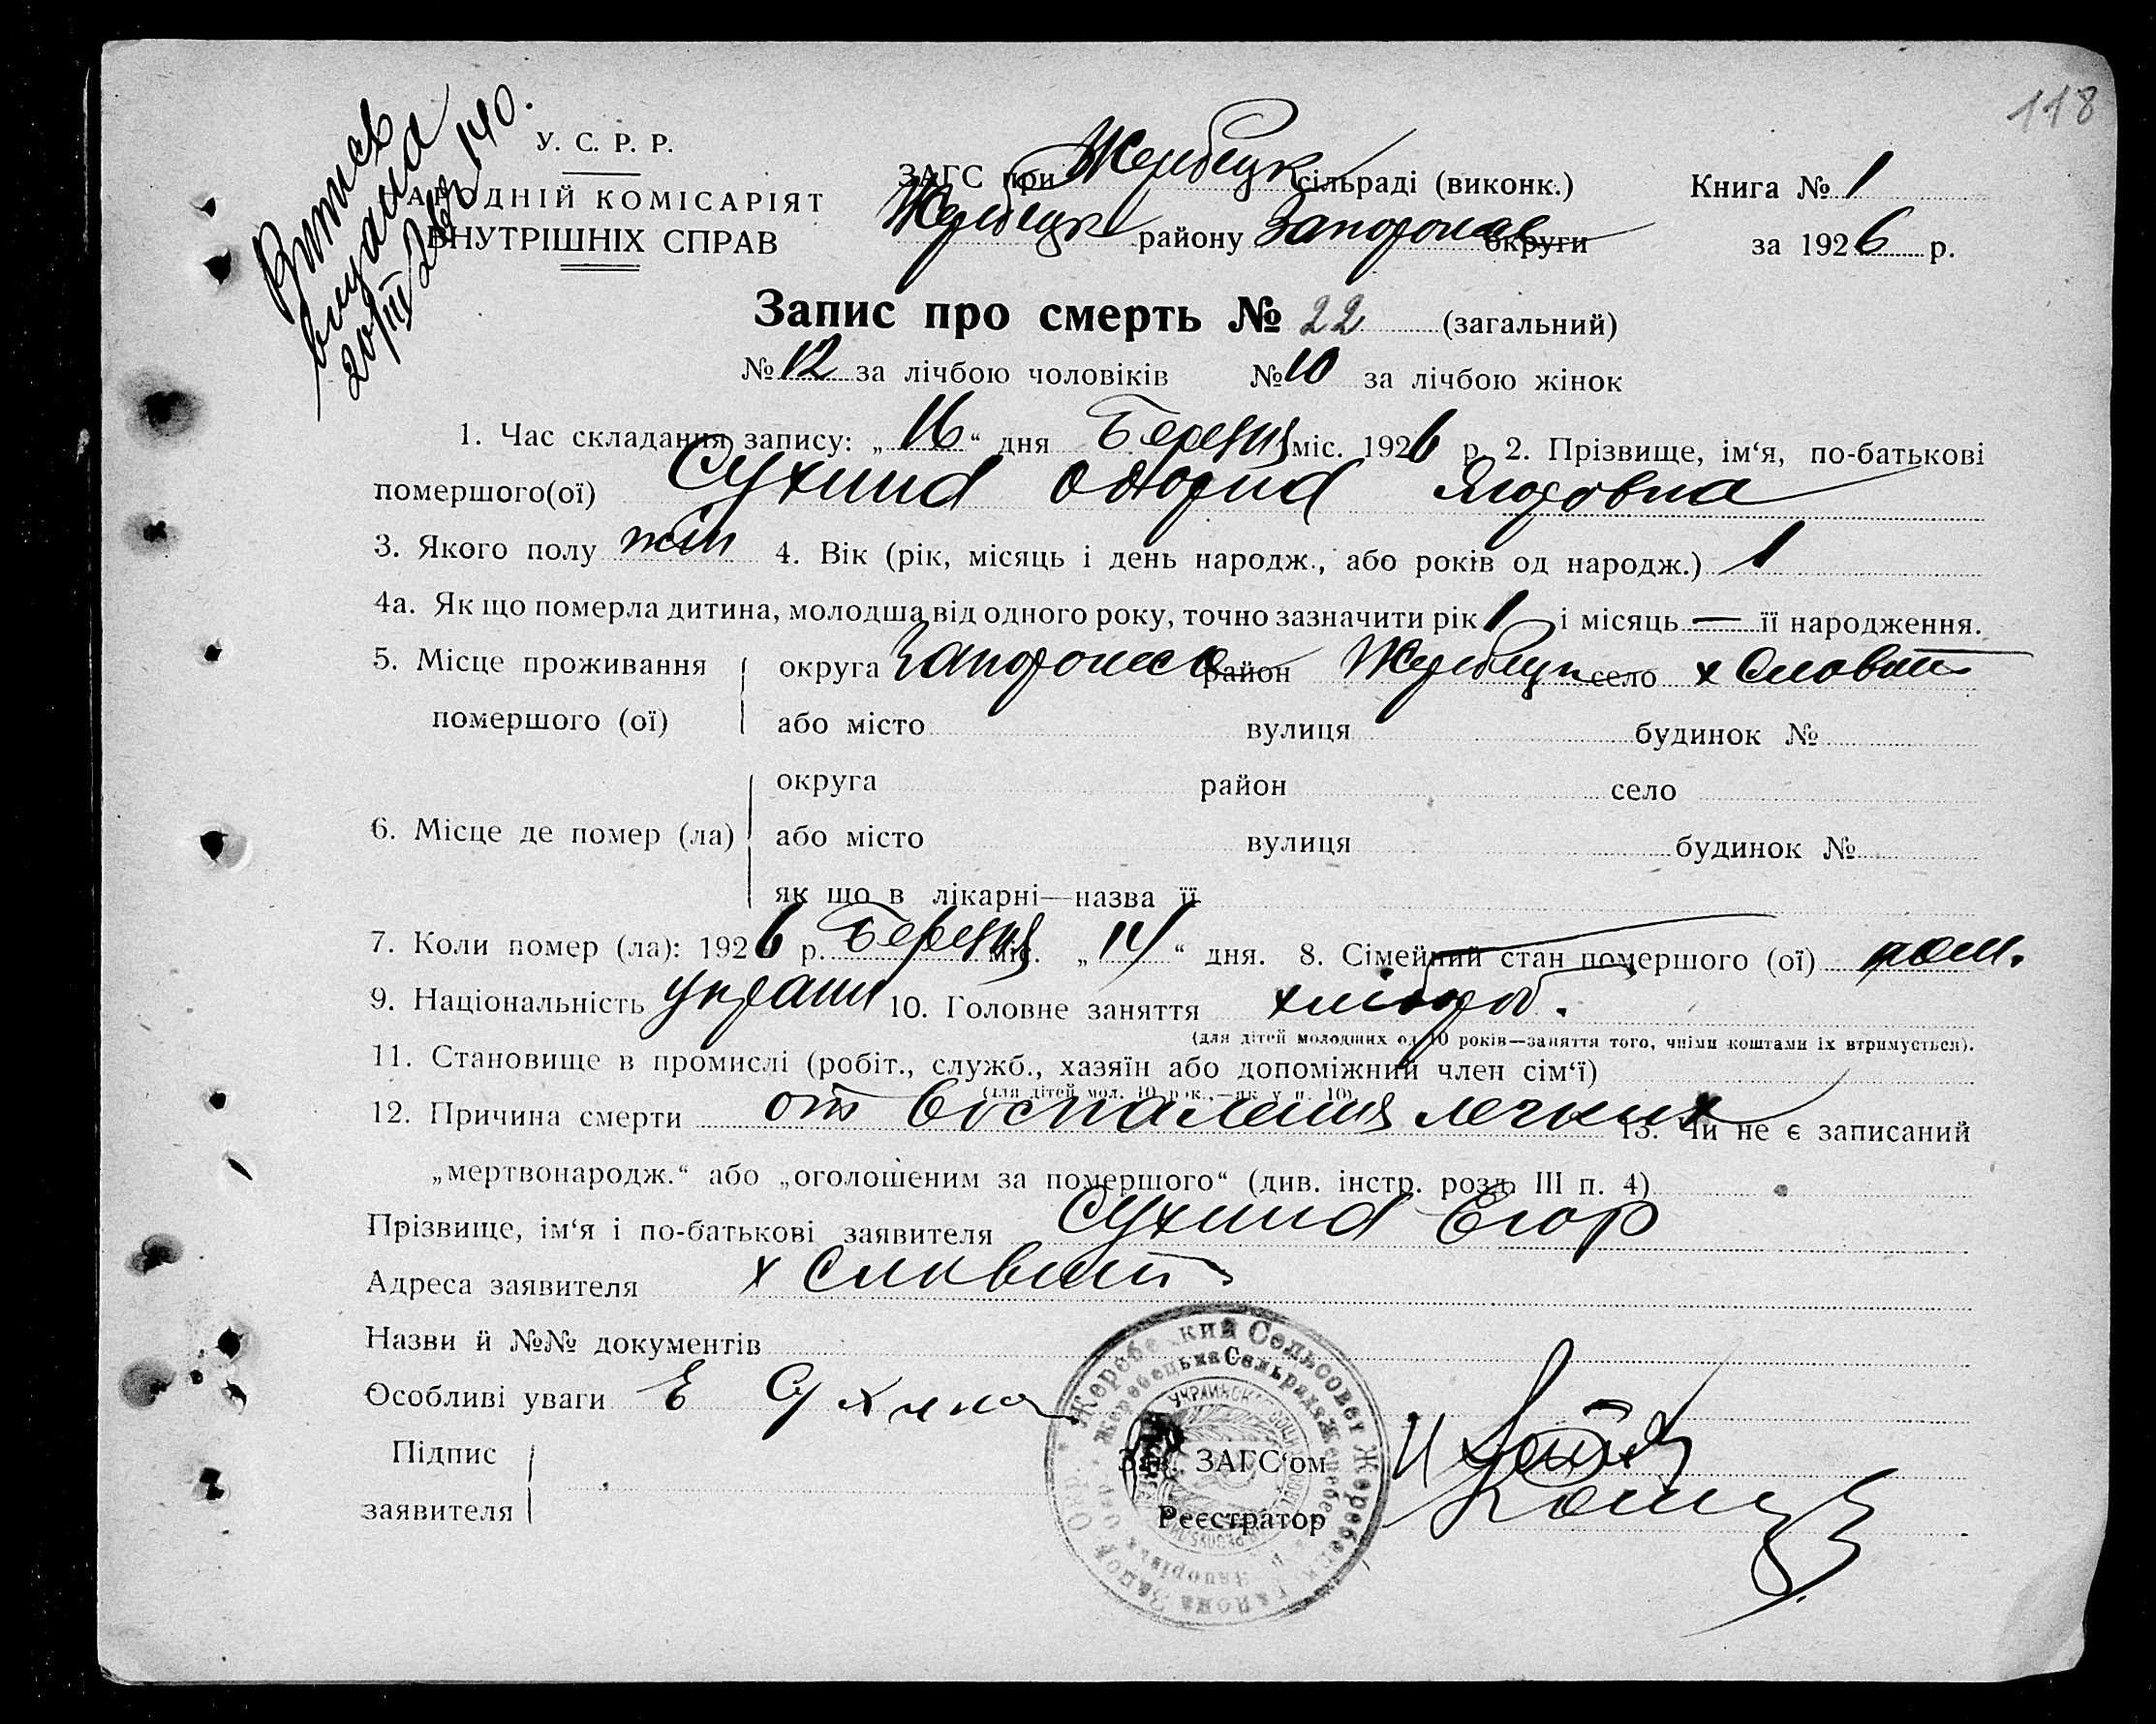 118
Витяг
видана
20/III 26 р. 140.
У. С. Р. Р.
НАРОДНІЙ КОМІСАРІЯТ
ВНУТРІШНІХ СПРАВ
ЗАГС при Жеребецк сільраді (виконк.)
Жеребецк району Запорожск округи
Книга № 1
за 1926 р.
Запис про смерть № 22 (загальний)
№ 12 за лічбою чоловіків № 10 за лічбою жінок
1. Час складання запису: „16“ дня Березня міс. 1926 р. 2. Прізвище, ім‘я, по-батькові
помершого(ої) Сухина
3. Якого полу жін 4. Вік (рік, місяць і день народж., або років од народж.) 1
4а. Як що померла дитина, молодша від одного року, точно зазначити рік 1 і місяць — її народження.
5. Місце проживання округа Запорожск район Жеребецк село х
помершого (ої) або місто вулиця будинок №
округа район село
6. Місце де помер (ла) або місто вулиця будинок №
як що в лікарні—назва її
7. Коли помер (ла): 1926 р. Березня міс. „14“ дня. 8. Сімейний стан помершого (ої)
9. Національність украин 10. Головне заняття хлібороб.
(для дітей молодших од 10 років—заняття того, чиїми коштами їх втримується).
11. Становище в промислі (робіт., служб., хазяїн або допоміжний член сім‘ї)
(для дітей мол. 10 рок.,—як у п. 10).
12. Причина смерти от воспаления легких 13. Чи не є записаний
„мертвонародж.“ або „оголошеним за помершого“ (див. інстр. розд. III п. 4)
Прізвище, ім‘я і по-батькові заявителя Сухина Егор
Адреса заявителя х
Назви й №№ документів
Особливі уваги Е Сухина
Підпис
заявителя
Зав. ЗАГС‘ом
Реєстратор